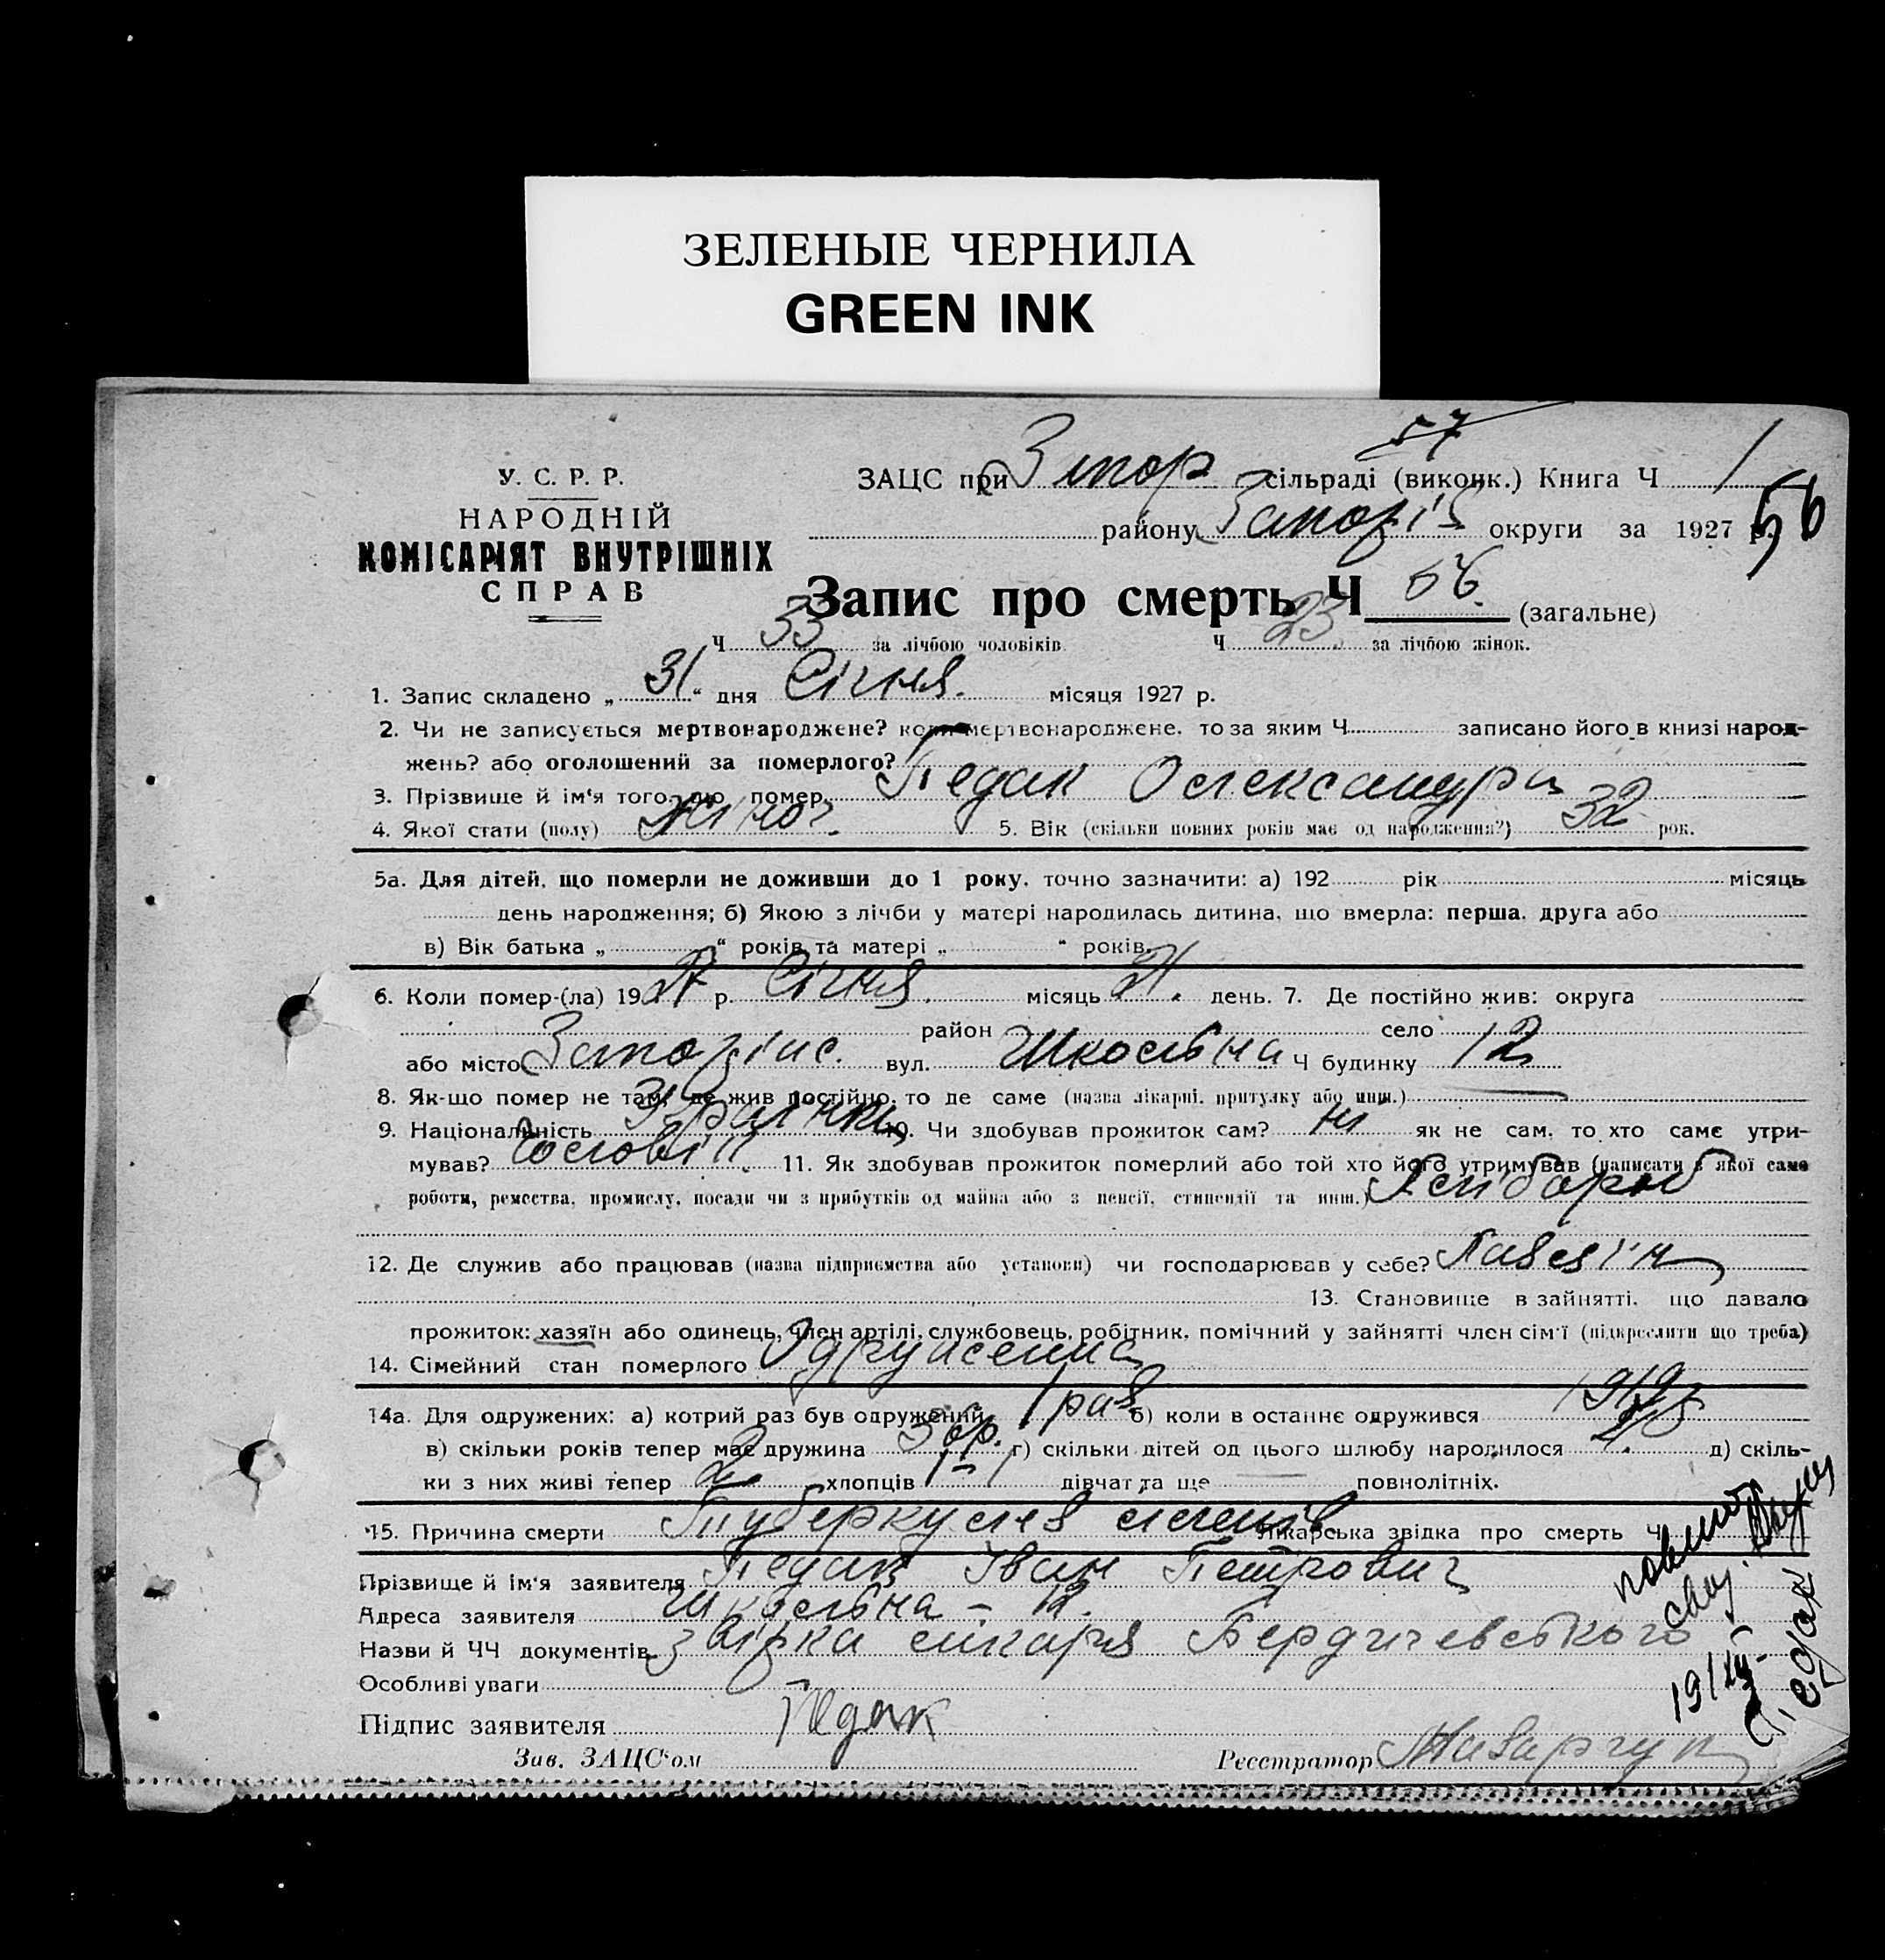 ЗЕЛЕНЫЕ ЧЕРНИЛА
GREEN INK
57
У. С. Р. Р.
НАРОДНІЙ
КОМІСАРІЯТ ВНУТРІШНІХ
СПРАВ
ЗАЦС при сільраді (виконк.) Книга Ч 1
району Запоріз округи за 1927 р. 56
Запис про смерть Ч 56. (загальне)
Ч 33 за лічбою чоловіків Ч 23 за лічбою жінок.
1. Запис складено „31“ дня Січня. місяця 1927 р.
2. Чи не записується мертвонароджене? коли мертвонароджене, то за яким Ч записано його в книзі народ-
жень? або оголошений за померлого?
3. Прізвище й ім'я того, що помер Педак Олександра
4. Якої стати (полу) жіноч. 5. Вік (скільки повних років має од народження?) 32 рок.
5а. Для дітей, що померли не доживши до 1 року, точно зазначити: а) 192 рік місяць
день народження; б) Якою з лічби у матері народилась дитина, що вмерла: перша, друга або
в) Вік батька „ “ років та матері „ “ років.
6. Коли помер-(ла) 1927 р. Січня. місяць день. 7. Де постійно жив: округа
район село
або місто Запоріжс. вул. Шкільна Ч будинку 12
8. Як-що помер не там, де жив постійно, то де саме (назва лікарні, притулку або инш.) —
9. Національність 10. Чи здобував прожиток сам? ні як не сам, то хто саме утри-
мував? Чоловік 11. Як здобував прожиток померлий або той хто його утримував (написати з якої саме
роботи, ремества, промислу, посади чи з прибутків од майна або з пенсії, стипендії та инш.)
12. Де служив або працював (назва підприємства або установи) чи господарював у себе?
13. Становище в зайнятті, що давало
прожиток: хазяїн або одинець, член артілі, службовець, робітник, помічний у зайнятті член сім'ї (підкреслити що треба)
14. Сімейний стан померлого Одружсенна
14а. Для одружених: а) котрий раз був одружений 1 раз б) коли в останнє одружився
в) скільки років тепер має дружина г) скільки дітей од цього шлюбу народилося 2. д) скіль-
ки з них живі тепер 2 хлопців 1 - 1 дівчат та ще — повнолітніх.
15. Причина смерти Туберкульоз легенів Лікарська звідка про смерть Ч
Прізвище й ім'я заявителя Педак Іван Петрович
Адреса заявителя Шкільна - 12.
Назви й ЧЧ документів звірка лікаря Бердичевського
Особливі уваги
Підпис заявителя Педак
Зав. ЗАЦС'ом Реєстратор
Педак